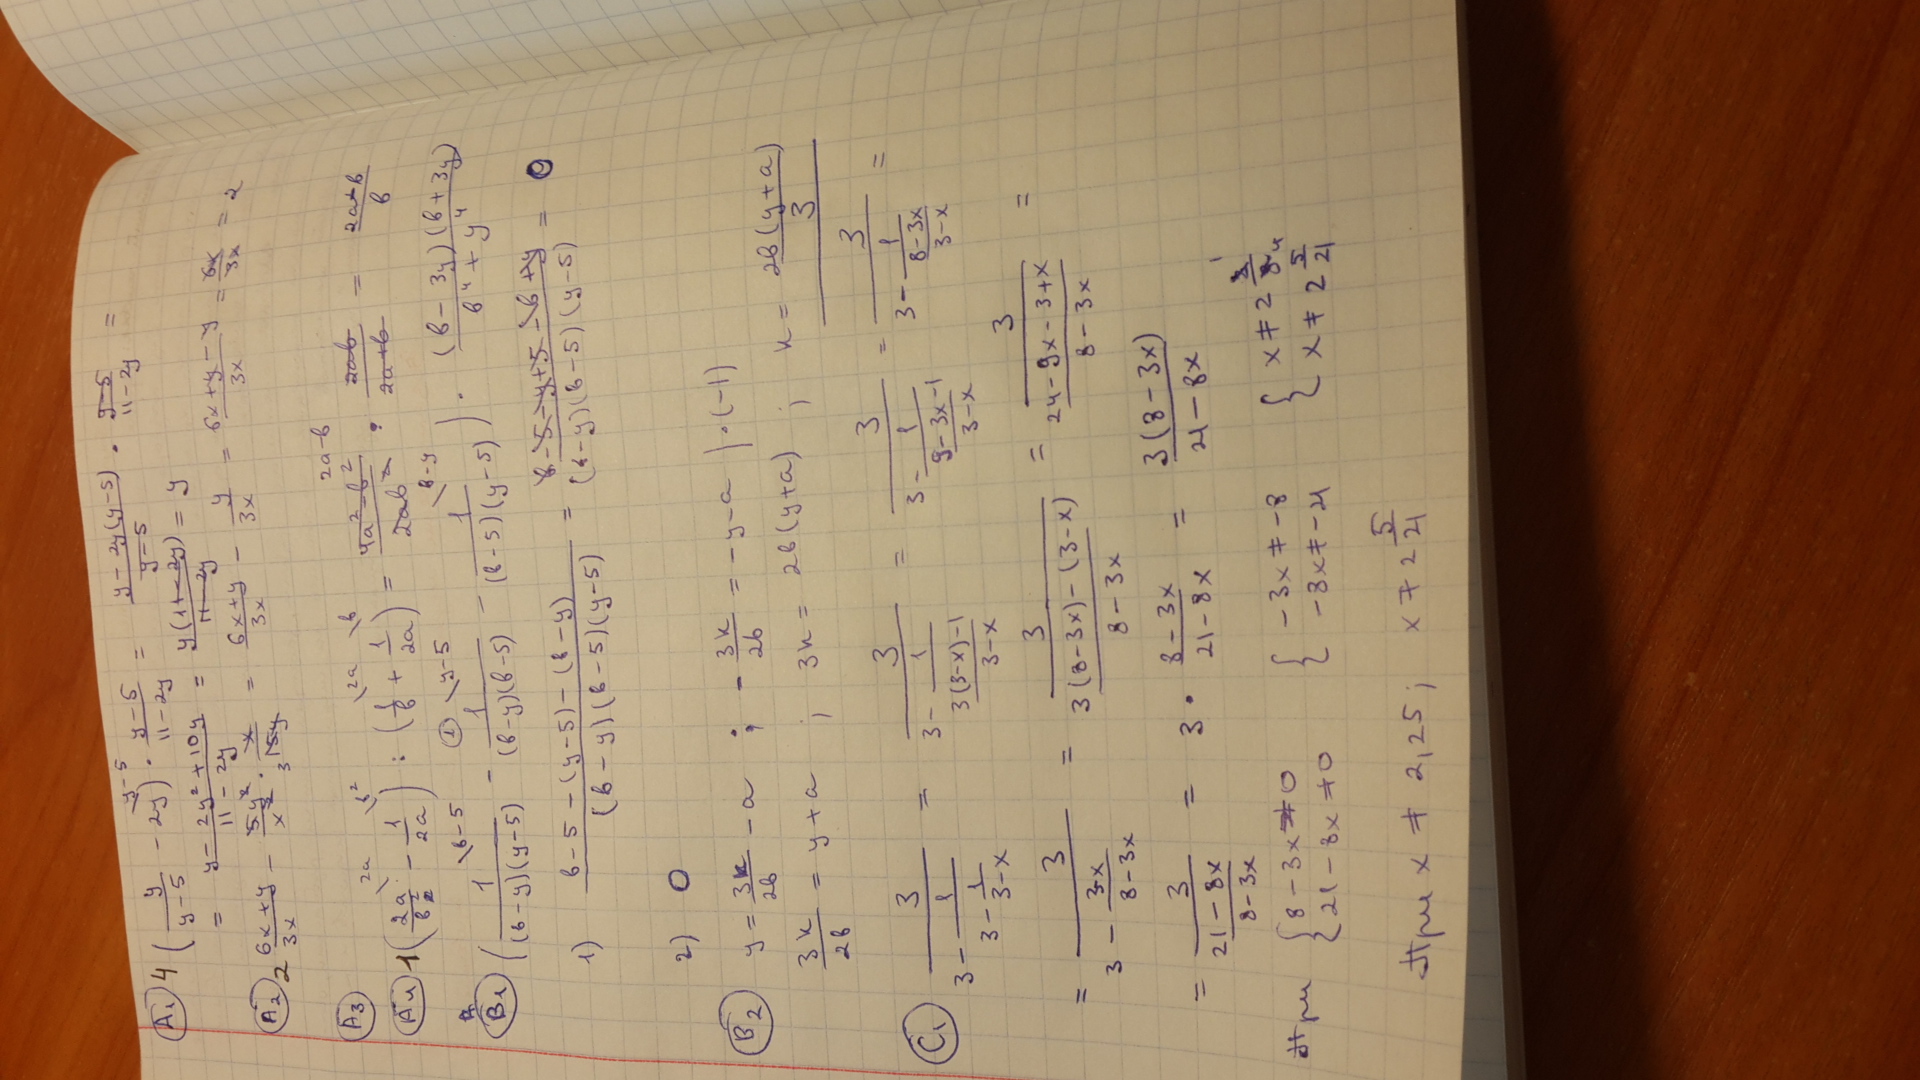 A1 4 (y/(y-5) - 2y) · (y-5)/(11-2y) = (y-2y(y-5))/(y-5) · (y-5)/(11-2y) =
= (y-2y²+10y)/(11-2y) = y(11-2y)/(11-2y) = y
A2 2 (6x+y)/3x - 5y²/x² · x/15y = (6x+y)/3x - y/3x = (6x+y-y)/3x = 6x/3x = 2
A3
A4 1 (2a/b² - 1/2a) : (1/b + 1/2a) = (4a²-b²)/2ab² · 2ab/(2a+b) = (2a-b)/b
B1 (1/((b-y)(y-5)) - 1/((b-y)(b-5)) - 1/((b-5)(y-5))) · ((b-3y)(b+3y))/(b⁴+y⁴)
1) (b-5-(y-5)-(b-y))/((b-y)(b-5)(y-5)) = (b-5-y+5-b+y)/((b-y)(b-5)(y-5)) = 0
2) 0
B2 y = 3k/2b - a ; -3k/2b = -y-a |·(-1)
3k/2b = y+a ; 3k = 2b(y+a) ; k = 2b(y+a)/3
C1 3/(3-1/(3-1/(3-x))) = 3/(3-1/((3(3-x)-1)/(3-x))) = 3/(3-1/((9-3x-1)/(3-x))) = 3/(3-1/((8-3x)/(3-x))) =
= 3/(3-(3-x)/(8-3x)) = 3/((3(8-3x)-(3-x))/(8-3x)) = 3/((24-9x-3+x)/(8-3x)) =
= 3/((21-8x)/(8-3x)) = 3 · (8-3x)/(21-8x) = 3(8-3x)/(21-8x)
При { 8-3x≠0 { -3x≠-8
{ 21-8x≠0 { -8x≠-21 { x≠2 5/21
При x ≠ 2,25 ; x ≠ 2 5/21